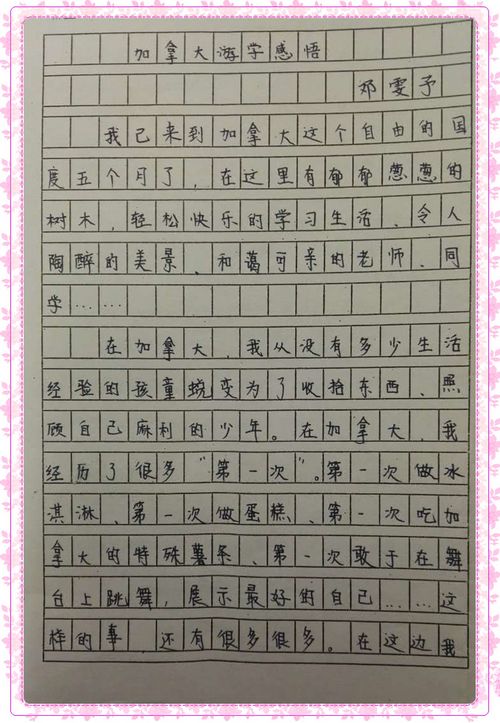 加拿大游学感悟
邓雯予
我已来到加拿大这个自由的国
度五个月了，在这里有郁郁葱葱的
树木，轻松快乐的学习生活、令人
陶醉的美景、和蔼可亲的老师、同
学……
在加拿大，我从没有多少生活
经验的孩童蜕变为了收拾东西、照
顾自己麻利的少年。在加拿大，我
经历了很多“第一次”。第一次做冰
淇淋、第一次做蛋糕、第一次吃加
拿大的特殊薯条、第一次敢于在舞
台上跳舞，展示最好的自己……这
样的事，还有很多很多。在这边我